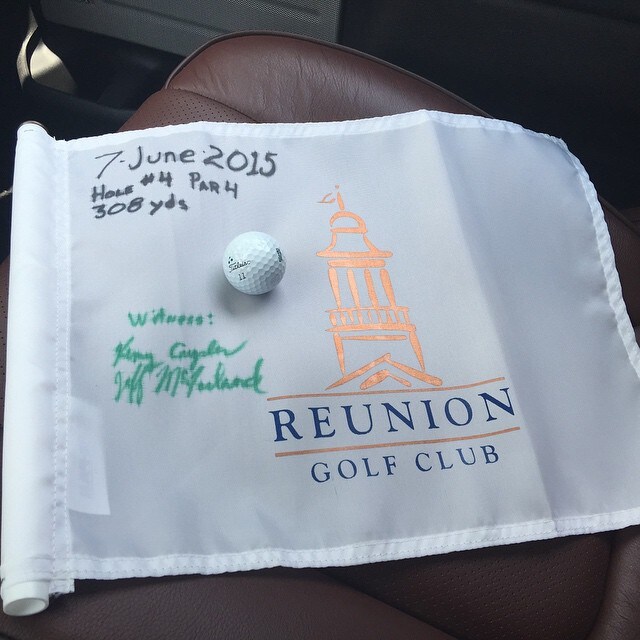 7 June 2015
Hole #4 Par 4
308 yds
Titleist
11
Witness:
Jeff McFarland
REUNION
GOLF CLUB